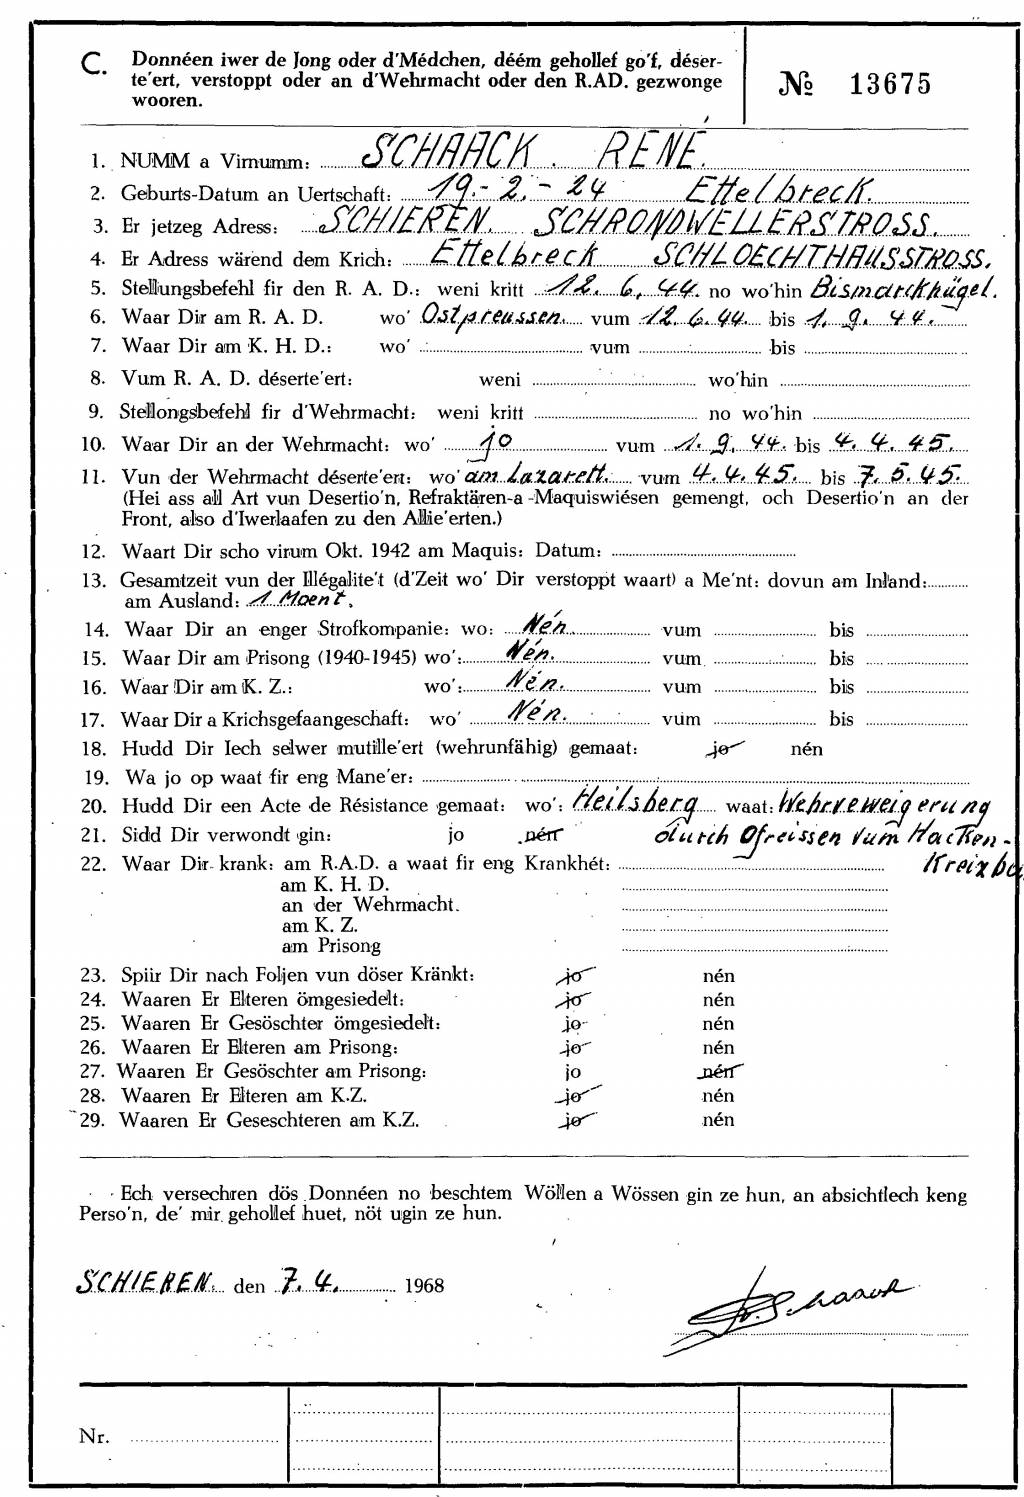 C. Donnéen iwer de Jong oder d'Médchen, déém gehollef go'f, déser-
te'ert, verstoppt oder an d'Wehrmacht oder den R.AD. gezwonge
wooren.
№ 13675
1. NUMM a Virnumm: SCHAACK. RENÉ.
2. Geburts-Datum an Uertschaft: 19.-2.-24 Ettelbreck.
3. Er jetzeg Adress: SCHIEREN. SCHRONDWELLERSTROSS.
4. Er Adress wärend dem Krich: Ettelbreck SCHLOECHTHAUSSTROSS.
5. Stellungsbefehl fir den R. A. D.: weni kritt 12. 6. 44. no wo'hin Bismarckhügel.
6. Waar Dir am R. A. D. wo' Ostpreussen. vum 12. 6. 44. bis 1. 9. 44.
7. Waar Dir am K. H. D.: wo' vum bis
8. Vum R. A. D. déserte'ert: weni wo'hin
9. Stellongsbefehl fir d'Wehrmacht: weni kritt no wo'hin
10. Waar Dir an der Wehrmacht: wo' jo vum 1. 9. 44. bis 4. 4. 45.
11. Vun der Wehrmacht déserte'ert: wo' am Lazarett. vum 4. 4. 45. bis 7. 5. 45.
(Hei ass all Art vun Desertio'n, Refraktären-a-Maquiswiésen gemengt, och Desertio'n an der
Front, also d'Iwerlaafen zu den Allie'erten.)
12. Waart Dir scho virum Okt. 1942 am Maquis: Datum:
13. Gesamtzeit vun der Illégalite't (d'Zeit wo' Dir verstoppt waart) a Me'nt: dovun am Inland:
am Ausland: 1 Moent.
14. Waar Dir an enger Strofkompanie: wo: Nén. vum bis
15. Waar Dir am Prisong (1940-1945) wo': Nén. vum bis
16. Waar Dir am K. Z.: wo': Nén. vum bis
17. Waar Dir a Krichsgefaangeschaft: wo' Nén. vum bis
18. Hudd Dir Iech selwer mutille'ert (wehrunfähig) gemaat: jo nén
19. Wa jo op waat fir eng Mane'er:
20. Hudd Dir een Acte de Résistance gemaat: wo': Heilsberg waat: Wehrveweigerung
21. Sidd Dir verwondt gin: jo nén durch Ofreissen vum Hacken-
22. Waar Dir krank: am R.A.D. a waat fir eng Krankhét: Kreizba
am K. H. D.
an der Wehrmacht.
am K. Z.
am Prisong
23. Spiir Dir nach Foljen vun döser Kränkt: jo nén
24. Waaren Er Elteren ömgesiedelt: jo nén
25. Waaren Er Gesöschter ömgesiedelt: jo nén
26. Waaren Er Elteren am Prisong: jo nén
27. Waaren Er Gesöschter am Prisong: jo nén
28. Waaren Er Elteren am K.Z. jo nén
29. Waaren Er Geseschteren am K.Z. jo nén
Ech versechren dös Donnéen no beschtem Wöllen a Wössen gin ze hun, an absichtlech keng
Perso'n, de' mir gehollef huet, nöt ugin ze hun.
SCHIEREN. den 7. 4. 1968
Schaack
Nr.